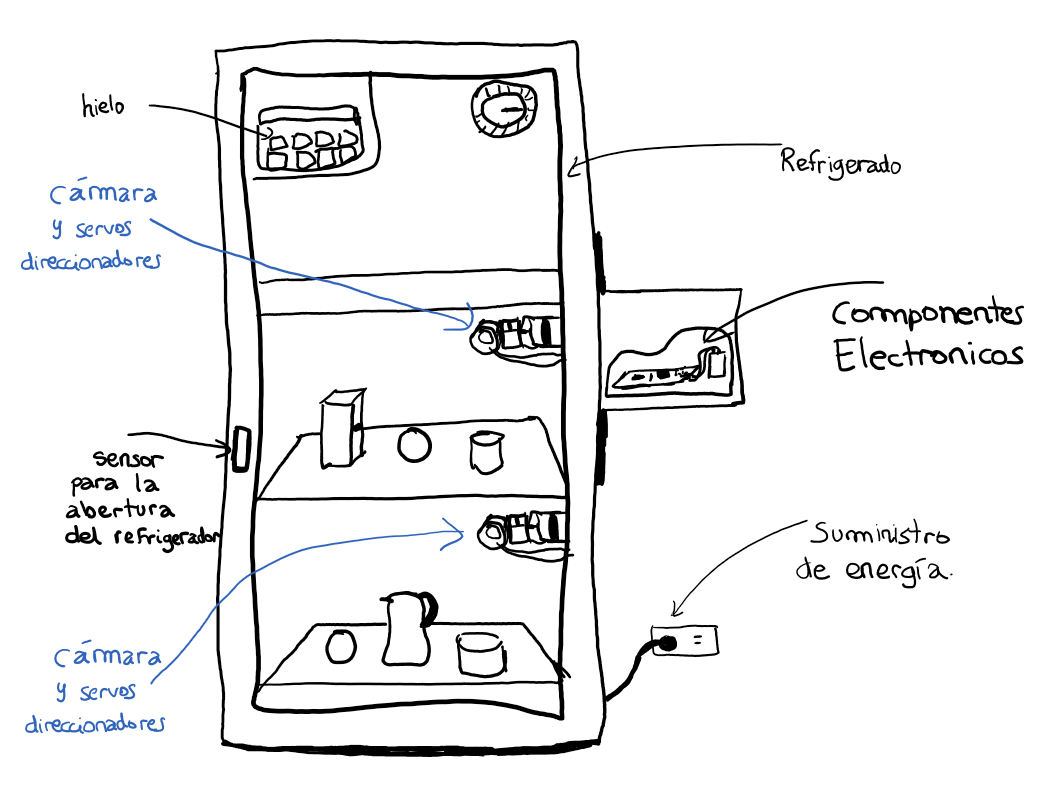 hielo
Refrigerado
Cármara
y servos
direccionadores
Componentes
Electronicos
sensor
para la
abertura
del refrigerador
Suministro
de energía.
Cármara
y servos
direccionadores